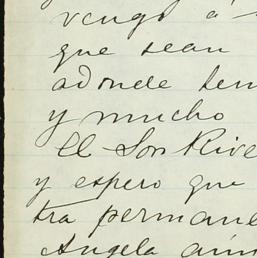 vengo a
que sean
adonde ten
y mucho
El Sor Rive
y espero que
tra permane
Angela aun